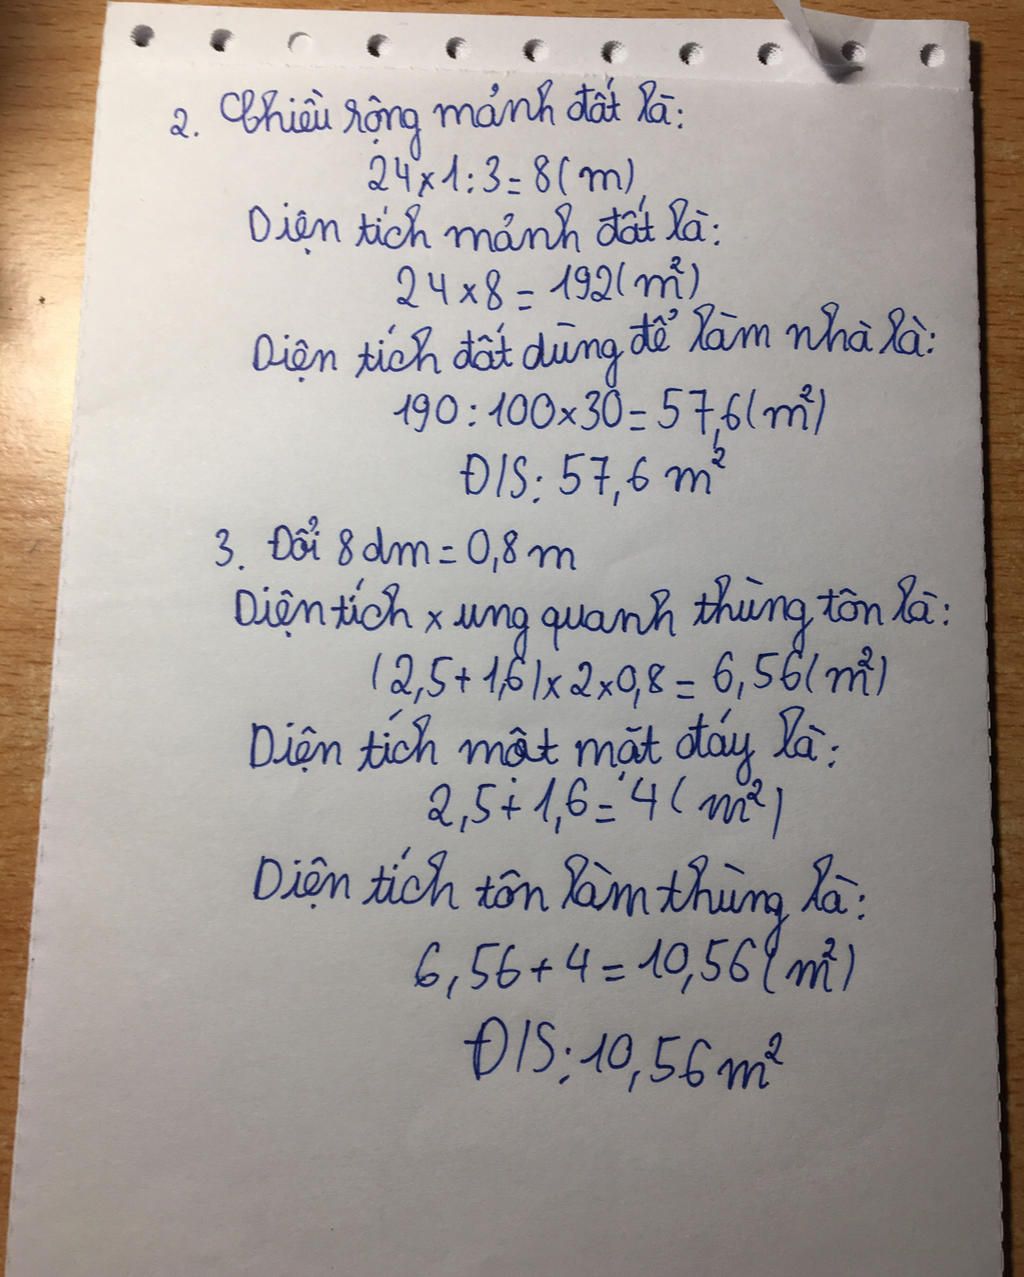 2. Chiều rộng mảnh đất là:
24 x 1 : 3 = 8 (m)
Diện tích mảnh đất là:
24 x 8 = 192 (m²)
Diện tích đất dùng để làm nhà là:
190 : 100 x 30 = 57,6 (m²)
Đ/S: 57,6 m²
3. Đổi 8 dm = 0,8 m
Diện tích xung quanh thùng tôn là:
(2,5 + 1,6) x 2 x 0,8 = 6,56 (m²)
Diện tích một mặt đáy là:
2,5 + 1,6 = 4 (m²)
Diện tích tôn làm thùng là:
6,56 + 4 = 10,56 (m²)
Đ/S: 10,56 m²